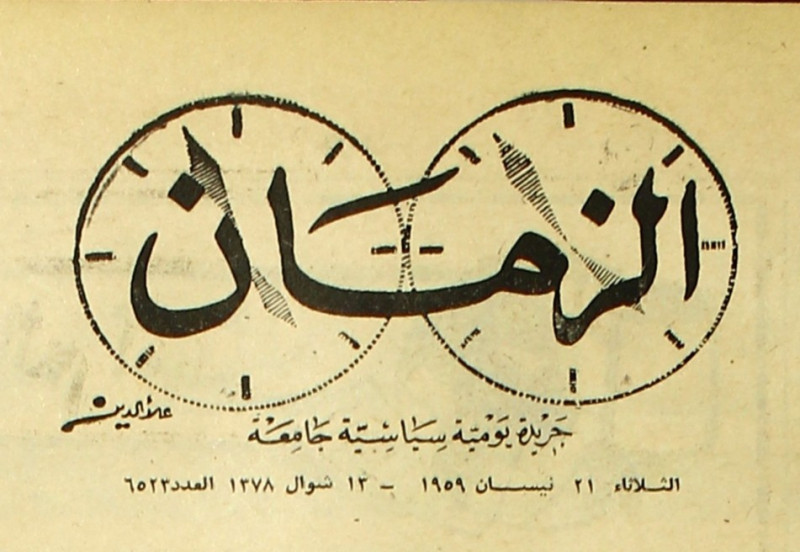 الزمان
علاءالدين
جريدة يومية سياسية جامعة
الثلاثاء ٢١ نيسان ١٩٥٩ - ١٣ شوال ١٣٧٨ العدد ٦٥٢٣